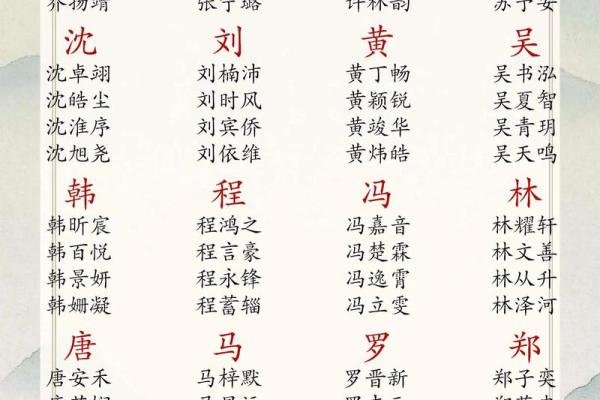 乔扬靖 张宁璐 许林韵 苏予安
沈 刘 黄 吴
沈卓翊 刘楠沛 黄丁畅 吴书泓
沈皓尘 刘时风 黄颖锐 吴夏智
沈淮序 刘宾侨 黄竣华 吴青玥
沈旭尧 刘依维 黄炜皓 吴天鸣
韩 程 冯 林
韩昕宸 程鸿之 冯嘉音 林耀轩
韩百悦 程言豪 冯楚霖 林文善
韩景妍 程永锋 冯逸霄 林从升
韩姗凝 程蓄辎 冯立雯 林泽河
唐 马 罗 郑
唐安禾 马梓默 罗晋新 郑子奕